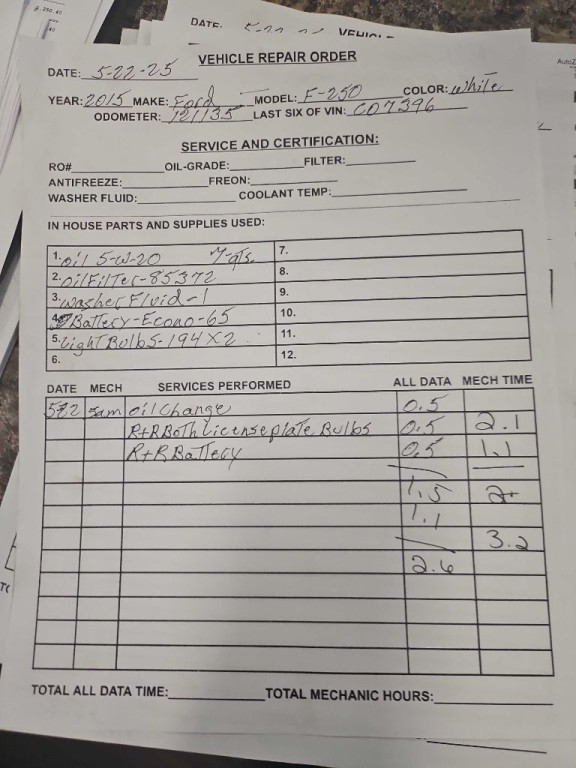 DATE: 5-22-25
VEHICLE REPAIR ORDER
DATE: 5-22-25
YEAR: 2015 MAKE: Ford MODEL: F-250 COLOR: white
ODOMETER: 121135 LAST SIX OF VIN: C07396
SERVICE AND CERTIFICATION:
RO# OIL-GRADE: FILTER:
ANTIFREEZE: FREON:
WASHER FLUID: COOLANT TEMP:
IN HOUSE PARTS AND SUPPLIES USED:
1. oil 5-w-20 7-qts. 7.
2. oilFilTer-85372 8.
3. washer Fluid-1 9.
4. BaTTery-Econo-65 10.
5. LighT Bulbs-194 X 2 11.
6. 12.
DATE MECH SERVICES PERFORMED ALL DATA MECH TIME
522 sam oil change 0.5
R+R BoTh License plaTe Bulbs 0.5 2.1
R+R BaTTery 0.5 1.1
1.5 2+
1.1
3.2
2.6
TOTAL ALL DATA TIME: TOTAL MECHANIC HOURS: